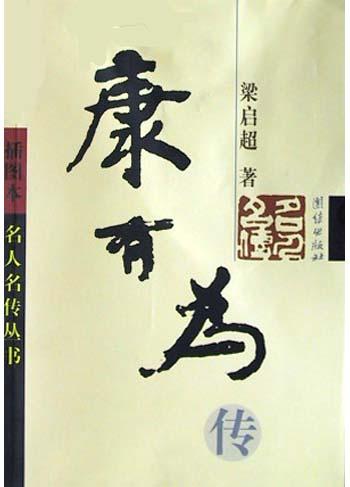 康有为
传
梁启超 著
名人名传
团结出版社
插图本
名人名传丛书